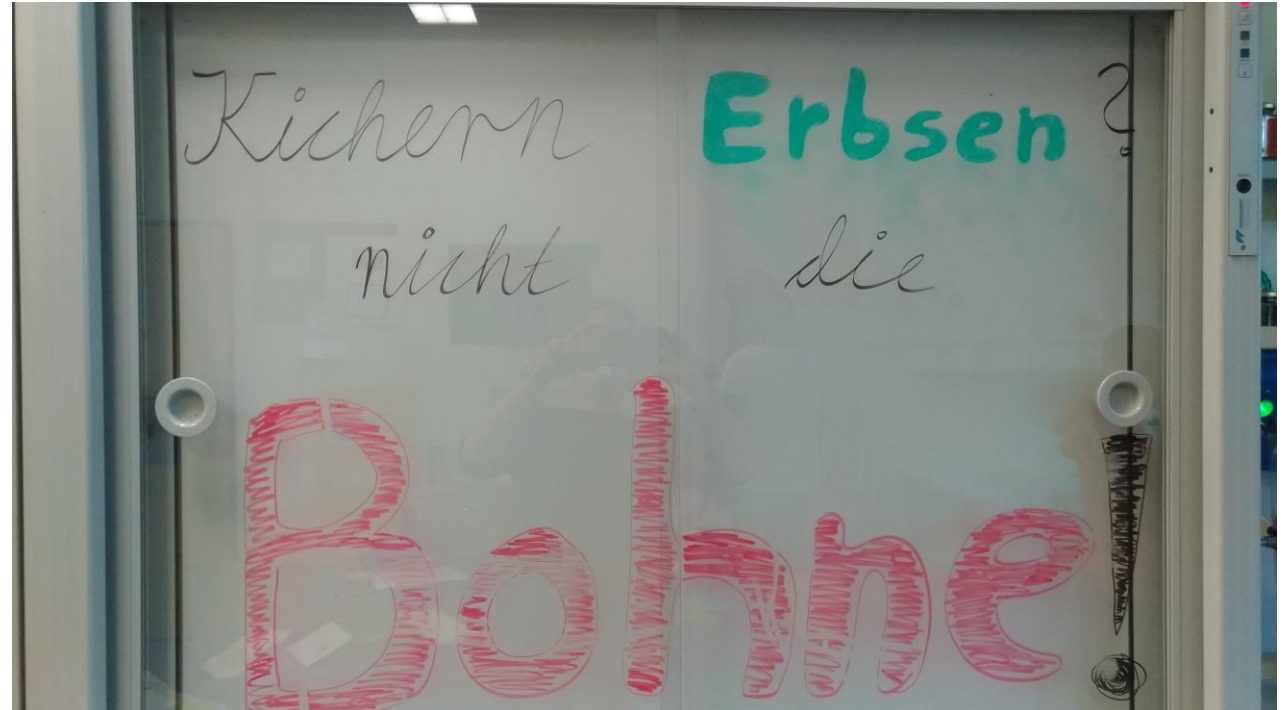 Kichern Erbsen ?
nicht die
Bohne!